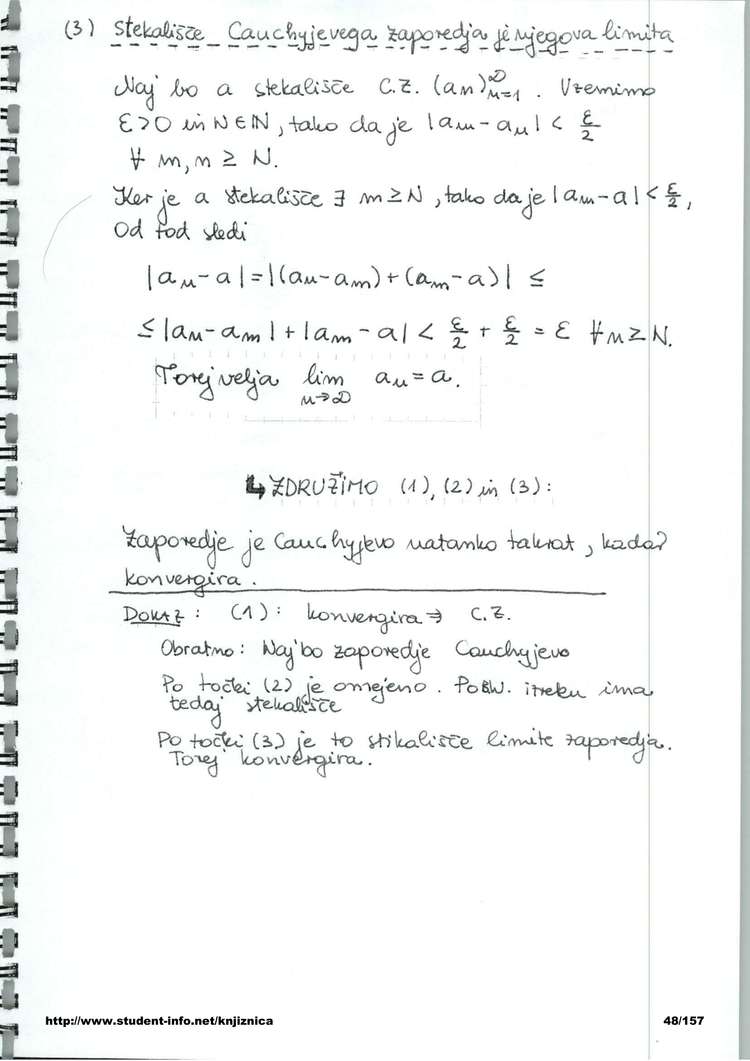 (3) Stekališče Cauchyjevega zaporedja je njegova limita
Naj bo a stekališče C.Z. (an)∞n=1. Vzemimo
ε>0 in N∈ℕ, tako da je |am-an| < ε/2
∀ m,n ≥ N.
Ker je a stekališče ∃ m≥N, tako da je |am-a| < ε/2,
Od tod sledi
|an-a|=|(an-am)+(am-a)| ≤
≤|an-am|+|am-a| < ε/2 + ε/2 = ε ∀n≥N.
Torej velja lim n→∞ an=a.
↳ ZDRUŽIMO (1), (2) in (3):
Zaporedje je Cauchyjevo natanko takrat, kadar
konvergira.
DOKAZ: (1): konvergira ⇒ C.Z.
Obratno: Naj bo zaporedje Cauchyjevo
Po točki (2) je omejeno. Po BW. izreku ima
tedaj stekališče
Po točki (3) je to stikališče limite zaporedja.
Torej konvergira.
http://www.student-info.net/knjiznica 48/157